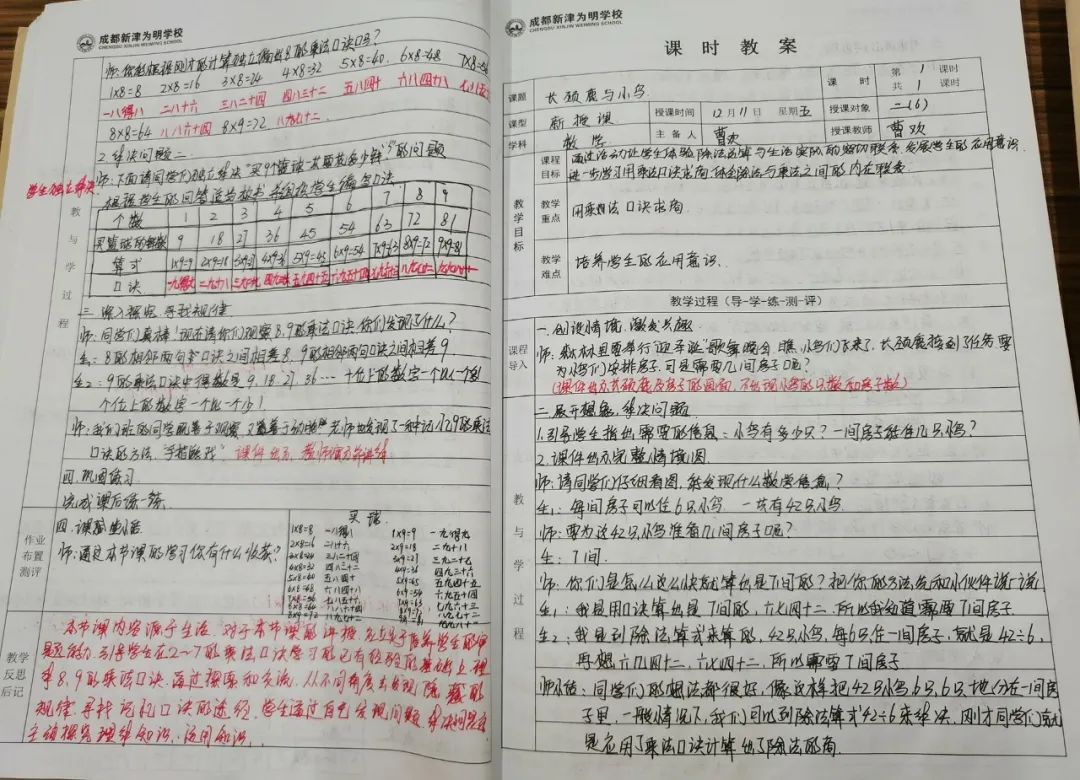 成都新津为明学校
CHENGDU XINJIN WEIMING SCHOOL
师:你能根据刚才的计算独立编出8的乘法口诀吗?
1×8=8 2×8=16 3×8=24 4×8=32 5×8=40 6×8=48 7×8=56
一八得八 二八十六 三八二十四 四八三十二 五八四十 六八四十八 七八五十
8×8=64 八八六十四 8×9=72 八九七十二
2.解决问题二
学生独立解决
师:下面请同学们独立解决"买9个篮球一共要花多少钱?"的问题
根据学生的回答适当板书,并组织学生编写口诀
教与学过程
个数 1 2 3 4 5 6 7 8 9
买篮球的钱数 9 18 27 36 45 54 63 72 81
算式 1×9=9 2×9=18 3×9=27 4×9=36 5×9=45 6×9=54 7×9=63 8×9=72 9×9=81
口诀 一九得九 二九十八 三九二十七 四九三十六 五九四十五 六九五十四 七九六十三 八九七十二 九九八十一
三.深入探究 寻找规律
师:同学们真棒!现在请你们观察8.9的乘法口诀,你们发现了什么?
生:8的相邻两句口诀之间相差8.9的相邻两句口诀之间相差9
生2:9的乘法口诀中得数是9.18.27.36…十位上的数字一个比一个多
个位上的数字一个比一个少1
师:我们班的同学既善于观察,又善于动脑,老师也发现了一种记住9的乘法
口诀的方法,"手指游戏"课件出示,教师演示并讲解
四.巩固练习
完成课后练一练.
作业布置测评
四.课堂小结
师:通过本节课的学习你有什么收获?
1×8=8 一八得八 1×9=9 一九得九
2×8=16 二八十六 2×9=18 二九十八
3×8=24 三八二十四 3×9=27 三九二十七
4×8=32 四八三十二 4×9=36 四九三十六
5×8=40 五八四十 5×9=45 五九四十五
6×8=48 六八四十八 6×9=54 六九五十四
7×8=56 七八五十六 7×9=63 七九六十三
8×8=64 八八六十四 8×9=72 八九七十二
教学反思后记
本节课内容源于生活.对于本节课的讲授,在于培养学生的
能力,引导学生在2~7的乘法口诀学习的已有经验的基础上,
8.9的乘法口诀.通过探索和交流,从不同角度去发现
规律.寻找记忆口诀的途径.学生通过自己发现问题,解决问题
主动探索理解知识、运用知识.
成都新津为明学校
CHENGDU XINJIN WEIMING SCHOOL
课时教案
课题 长颈鹿与小鸟 课时 第1课时 共1课时
课型 新授课 授课时间 12月11日 星期五 授课对象 二(6)
学科 数学 主备人 曹欢 授课教师 曹欢
教学目标
课程目标 通过活动让学生体验除法运算与生活实际的密切联系,发展学生的应用意识.
进一步学习用乘法口诀求商,体会除法与乘法之间的内在联系.
教学重点 用乘法口诀求商.
教学难点 培养学生的应用意识.
教学过程(导-学-练-测-评)
课程导入
一.创设情境,激发兴趣
师:森林里要举行"迎新"歌舞晚会,瞧,小鸟们来了,长颈鹿接到了任务要
为小鸟们安排房子,可是需要几间房子呢?
(课件出示长颈鹿及房子的画面,不出现小鸟的只数和房子数)
教与学过程
二.展开想象,解决问题
1.引导学生指出需要的信息:小鸟有多少只?一间房子能住几只小鸟?
2.课件出示完整情境图.
师:请同学们仔细看图,能发现什么数学信息?
生1:每间房子可以住6只小鸟.一共有42只小鸟.
师:要为这42只小鸟准备几间房子呢?
生:7间.
师:你们是怎么这么快就算出是7间的?把你的方法先和小伙伴说一说
生1:我是用口诀算出是7间的,六七四十二,所以我知道需要7间房子
生2:我是列除法算式来算的,42只小鸟,每6只住一间房子,就是42÷6,
再想六几四十二,六七四十二,所以需要7间房子
师小结:同学们的想法都很好,像这样把42只小鸟6只6只地分在一间房
子里,一般情况下,我们可以列除法算式42÷6来解决,刚才同学们就
是应用了乘法口诀计算出了除法的商.